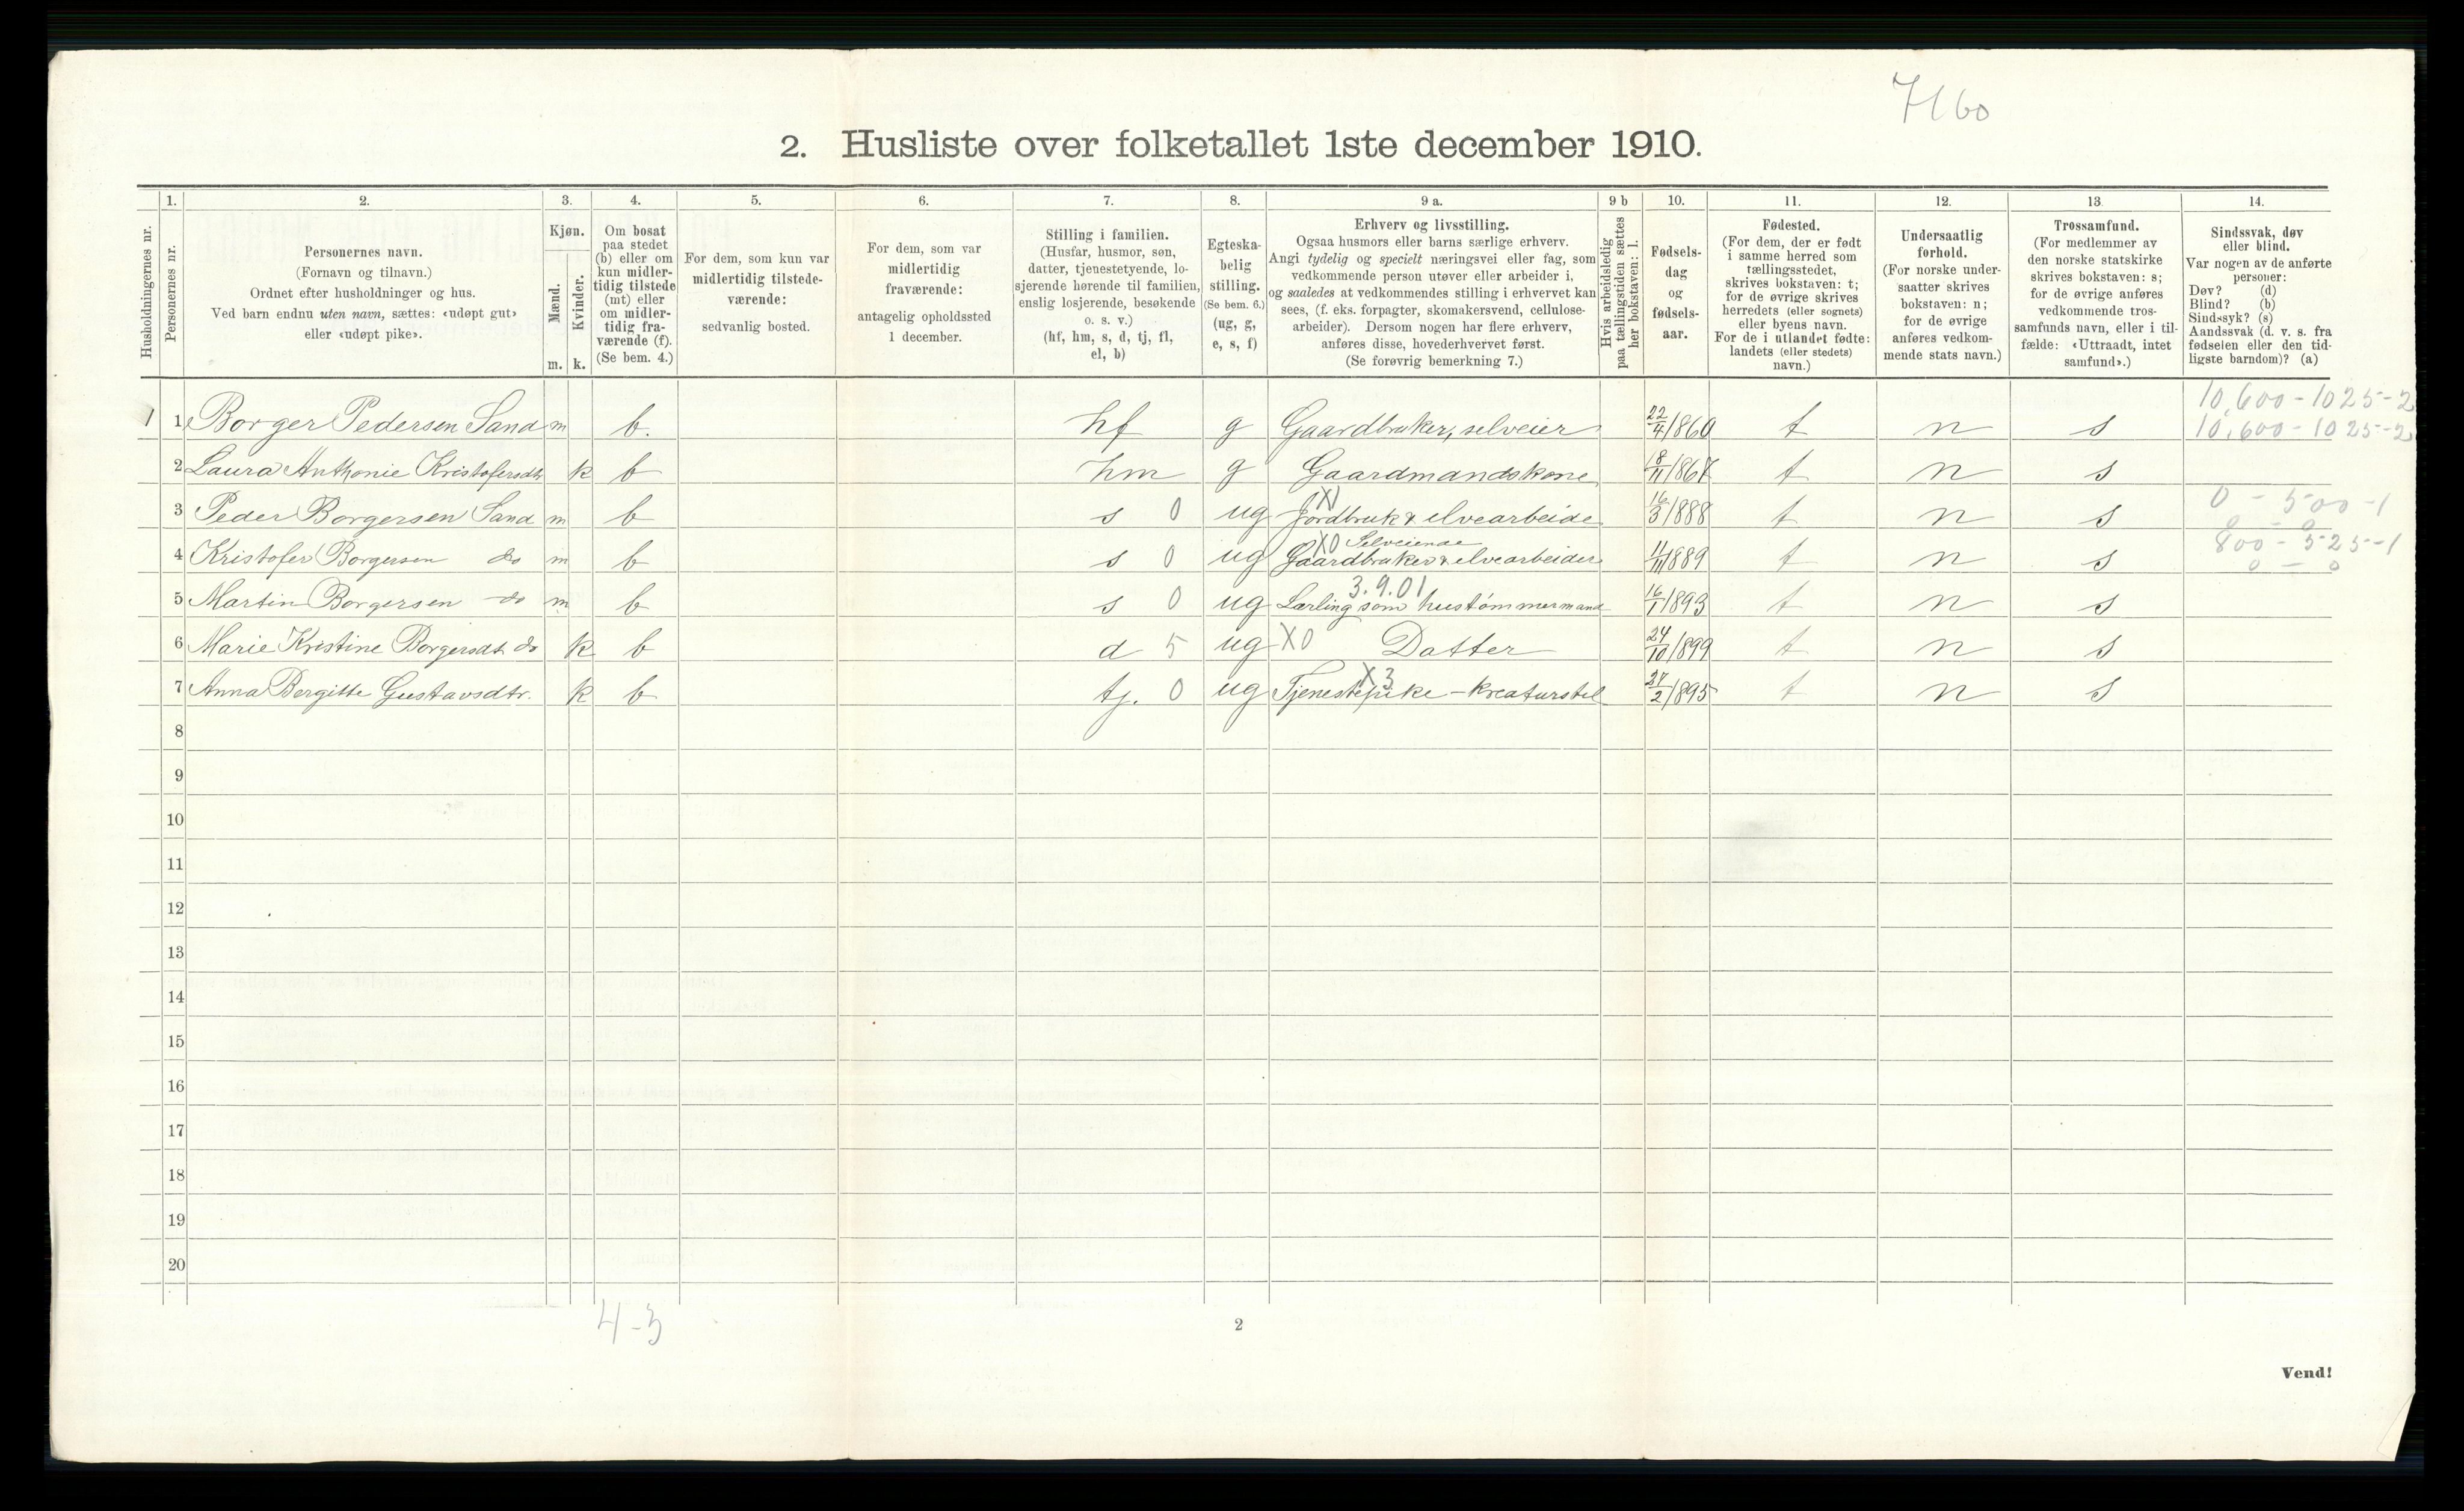 7160
2. Husliste over folketallet 1ste december 1910.
1. 2. 3. 4. 5. 6. 7. 8. 9 a. 9 b 10. 11. 12. 13 14.
Husholdningernes nr.
Personernes nr.
Personernes navn.
(Fornavn og tilnavn.)
Ordnet efter husholdninger og hus.
Ved barn endnu uten navn, sættes: «udøpt gut»
eller «udøpt pike».
Kjøn.
Mænd.
Kvinder.
m. k.
Om bosat
paa stedet
(b) eller om
kun midler-
tidig tilstede
(mt) eller
om midler-
tidig fra-
værende (f).
(Se bem. 4.)
For dem, som kun var
midlertidig tilstede-
værende:
sedvanlig bosted.
For dem, som var
midlertidig
fraværende:
antagelig opholdssted
1 december.
Stilling i familien.
(Husfar, husmor, søn,
datter, tjenestetyende, lo-
sjerende hørende til familien,
enslig losjerende, besøkende
o. s. v.)
(hf, hm, s, d, tj, fl,
el, b)
Egteska-
belig
stilling.
(Se bem. 6.)
(ug, g,
e, s, f)
Erhverv og livsstilling.
Ogsaa husmors eller barns særlige erhverv.
Angi tydelig og specielt næringsvei eller fag, som
vedkommende person utøver eller arbeider i,
og saaledes at vedkommendes stilling i erhvervet kan
sees, (f. eks. forpagter, skomakersvend, cellulose-
arbeider). Dersom nogen har flere erhverv,
anføres disse, hovederhvervet først.
(Se forøvrig bemerkning 7.)
Hvis arbeidsledig
paa tællingstiden sættes
her bokstaven: l.
Fødsels-
dag
og
fødsels-
aar.
Fødested.
(For dem, der er født
i samme herred som
tællingsstedet,
skrives bokstaven: t;
for de øvrige skrives
herredets (eller sognets)
eller byens navn.
For de i utlandet fødte:
landets (eller stedets)
navn.)
Undersaatlig
forhold.
(For norske under-
saatter skrives
bokstaven: n;
for de øvrige
anføres vedkom-
mende stats navn.)
Trossamfund.
(For medlemmer av
den norske statskirke
skrives bokstaven: s;
for de øvrige anføres
vedkommende tros-
samfunds navn, eller i til-
fælde: «Uttraadt, intet
samfund».)
Sindssvak, døv
eller blind.
Var nogen av de anførte
personer:
Døv? (d)
Blind? (b)
Sindssyk? (s)
Aandssvak (d. v. s. fra
fødselen eller den tid-
ligste barndom)? (a)
10,600 - 1025 - 2
1 1 Borger Pedersen Sand m b. hf g Gaardbruker, selveier 22/4 1860 t n s 10,600 - 1025 - 2
2 Laura Anthonie Kristofersdtr k b hm g Gaardmandskone 18/11 1867 t n s
3 Peder Borgersen Sand m b s 0 ug Jordbruk & elvearbeide 16/3 1888 t n s 0 - 500 - 1
0 - 0
X0 Selveiende
4 Kristofer Borgersen do m b s 0 ug Gaardbruker & elvearbeider 11/11 1889 t n s 800 - 525 - 1
0 - 0
3.9.01
5 Martin Borgersen do m b s 0 ug Lærling som hustømmermand 16/1 1893 t n s
6 Marie Kristine Borgersdt. do k b d 5 ug X0 Datter 24/10 1899 t n s
X3
7 Anna Bergitte Gustavsdtr. k b tj. 0 ug Tjenestepike - kreaturstel 27/2 1895 t n s
8
9
10
11
12
13
14
15
16
17
18
19
20
4-3
2
Vend!